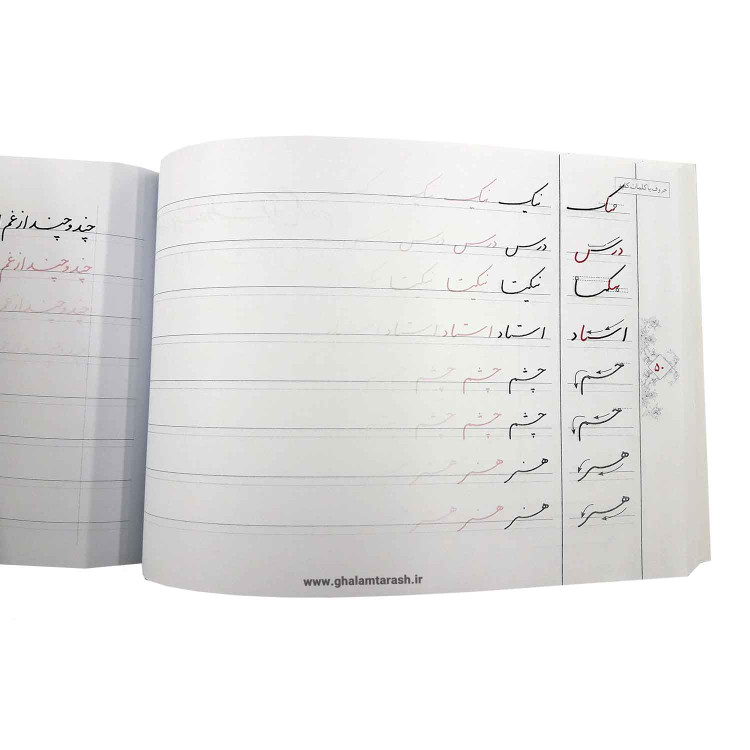 نیک نیک نیک نیک
درس درس درس درس
یکتا یکتا یکتا یکتا
استاد استاد استاد استاد استاد
چشم چشم چشم چشم
چشم چشم چشم چشم
هنر هنر هنر هنر
هنر هنر هنر هنر
۵۰
چند و چند از غم
چند و چند از غم
چند و چند از غم
www.ghalamtarash.ir